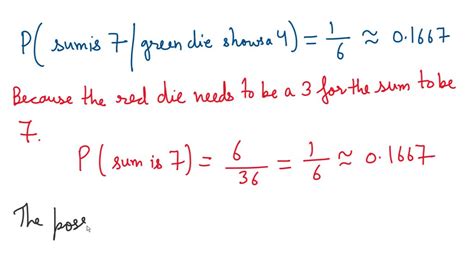 P( sum is 7 | green die shows a 4) = 1/6 ≈ 0.1667
Because the red die needs to be a 3 for the sum to be
7.
P( sum is 7) = 6/36 = 1/6 ≈ 0.1667
The poss